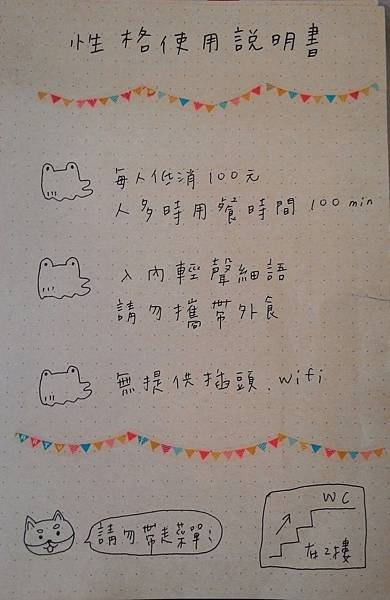 性格使用說明書
每人低消100元
人多時用餐時間100min
入內輕聲細語
請勿攜帶外食
無提供插頭.wifi
請勿帶走菜單:
WC
在2樓